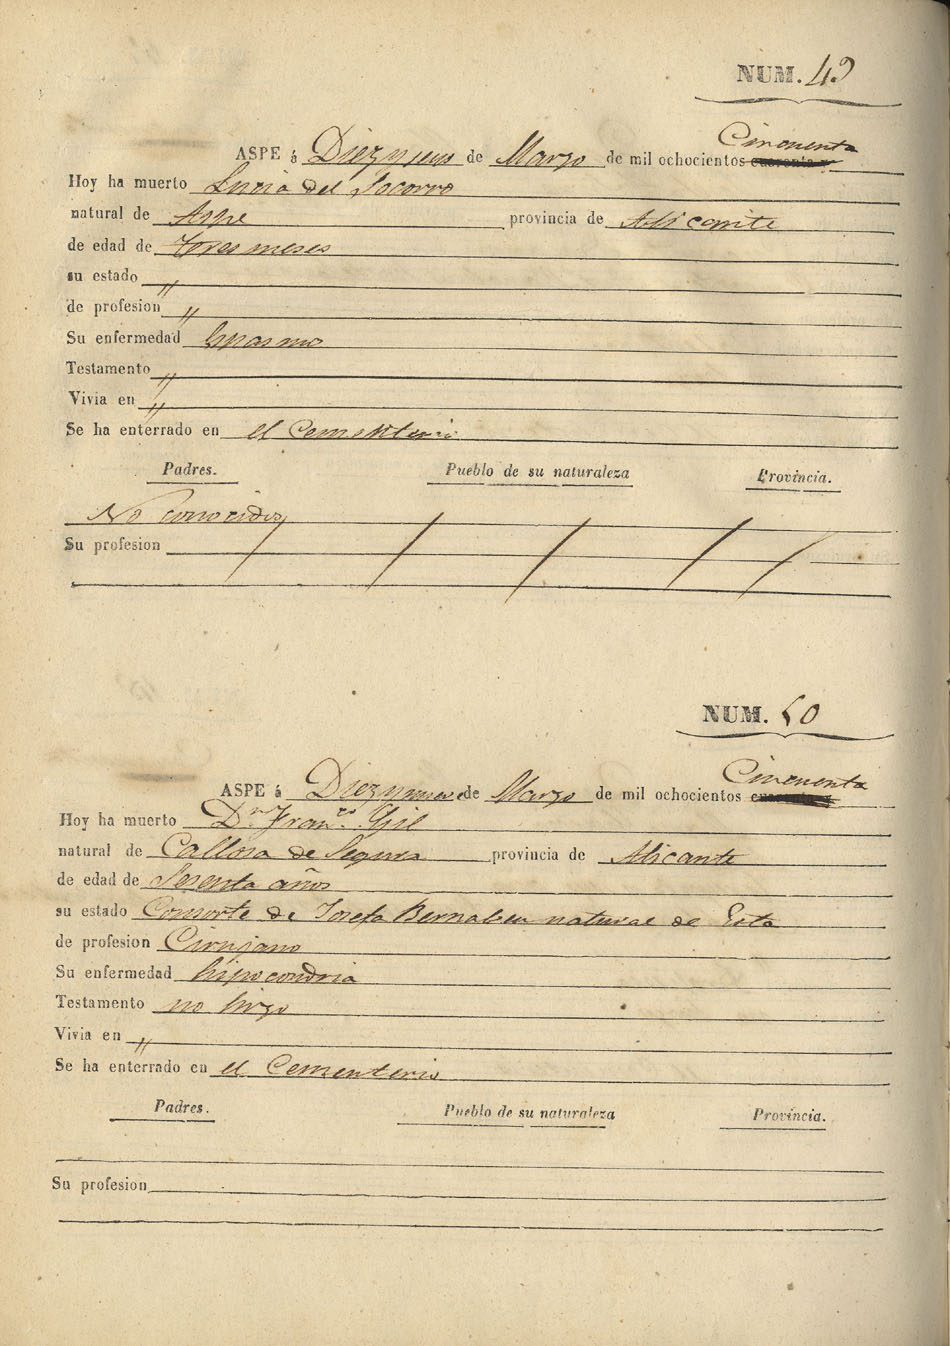 NUM. 49
Cincuenta
ASPE á Diez y seis de Marzo de mil ochocientos cuarenta y
Hoy ha muerto Lucia del Socorro
natural de Aspe provincia de Alicante
de edad de tres meses
su estado "
de profesion "
Su enfermedad Espasmo
Testamento "
Vivia en "
Se ha enterrado en el Cementerio
Padres. Pueblo de su naturaleza Provincia.
No conocidos
Su profesion
NUM. 50
Cincuenta
ASPE á Diez y nueve de Marzo de mil ochocientos cuarenta y
Hoy ha muerto Dn Franco Gil
natural de Callosa de Segura provincia de Alicante
de edad de Sesenta años
su estado Consorte de Josefa Bernabeu natural de Esta
de profesion Cirujano
Su enfermedad hipocondria
Testamento no hizo
Vivia en "
Se ha enterrado en el Cementerio
Padres. Pueblo de su naturaleza Provincia.
Su profesion